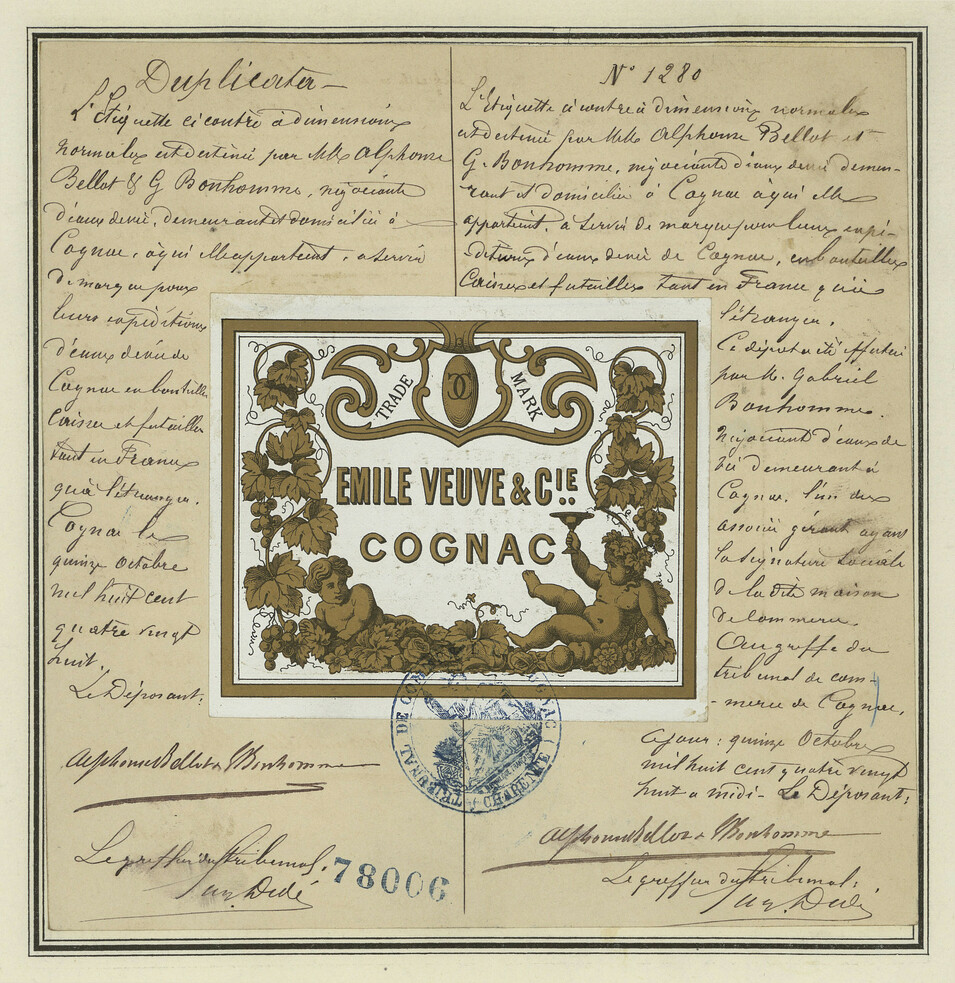 Duplicata
L'Etiquette ci contre à dimensions
normales est destinée par MM. Alphonse
Bellot & G Bonhomme, négociants
d'eaux de vie, demeurant et domiciliés à
Cognac, à qui elle appartient, à servir
de marque pour
leurs expéditions
d'eaux de vie de
Cognac en bouteilles
Caisses et futailles
tant en France
qu'à l'étranger.
Cognac le
quinze Octobre
mil huit cent
quatre vingt
huit.
Le Déposant:
Alphonse Bellot & G Bonhomme
Le greffier du tribunal:
N° 1280
L'Etiquette ci contre à dimensions normales
est destinée par MM. Alphonse Bellot et
G. Bonhomme, négociants d'eaux de vie demeu-
rant et domiciliés à Cognac à qui elle
appartient, à servir de marque pour leurs expé-
ditions d'eaux de vie de Cognac, en bouteilles
Caisses et futailles tant en France qu'à
l'étranger.
Ce dépôt a été effectué
par M. Gabriel
Bonhomme.
Négociant d'eaux de
vie demeurant à
Cognac, l'un des
associés gérant ayant
la signature sociale
de la dite maison
de commerce.
Au greffe du
tribunal de com-
merce de Cognac,
ce jour: quinze Octobre
mil huit cent quatre vingt
huit à midi - Le Déposant:
Alphonse Bellot & G Bonhomme
Le greffier du tribunal:
TRADE MARK
EMILE VEUVE & CIE.
COGNAC
TRIBUNAL DE COMMERCE COGNAC (CHARENTE)
78006